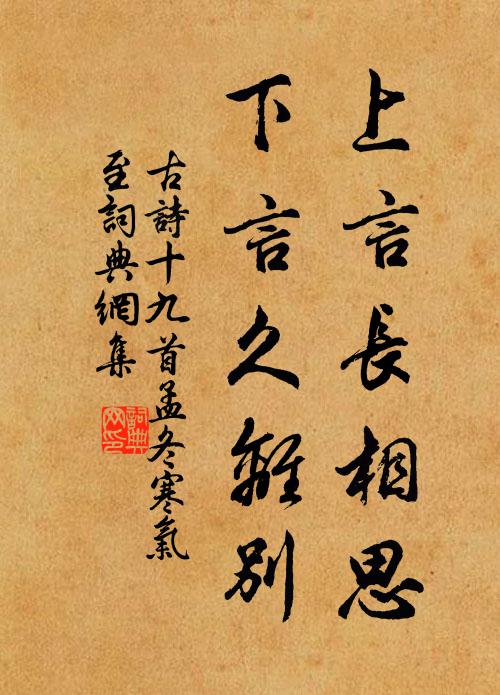 上言長相思
下言久離別
古詩十九首孟冬寒氣
至詞典網集
詞典
网印